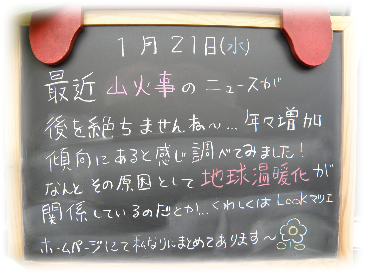 1月21日(水)
最近 山火事のニュースが
後を絶ちませんね〜… 年々増加
傾向にあると感じ調べてみました!
なんと その原因として 地球温暖化が
関係しているのだとか… くわしくは Lookマツエ
ホームページにて私なりにまとめてあります〜